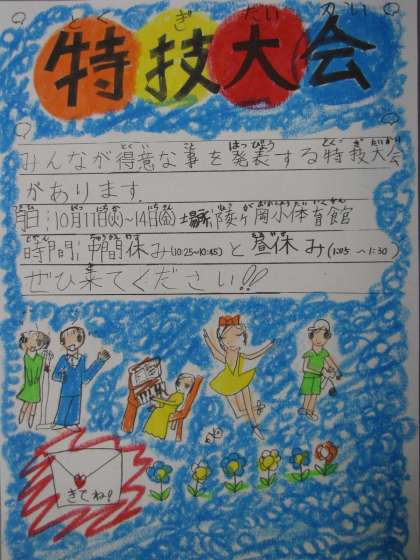 とく ぎ たい かい
特技大会
みんなが得意な事を発表する特技大会
があります。
月日:10月11日(火)~14日(金)場所:陵ヶ岡小体育館
時間:中間休み(10:25~10:45)と昼休み(1:05~1:30)
ぜひ来てください!!
きてね!